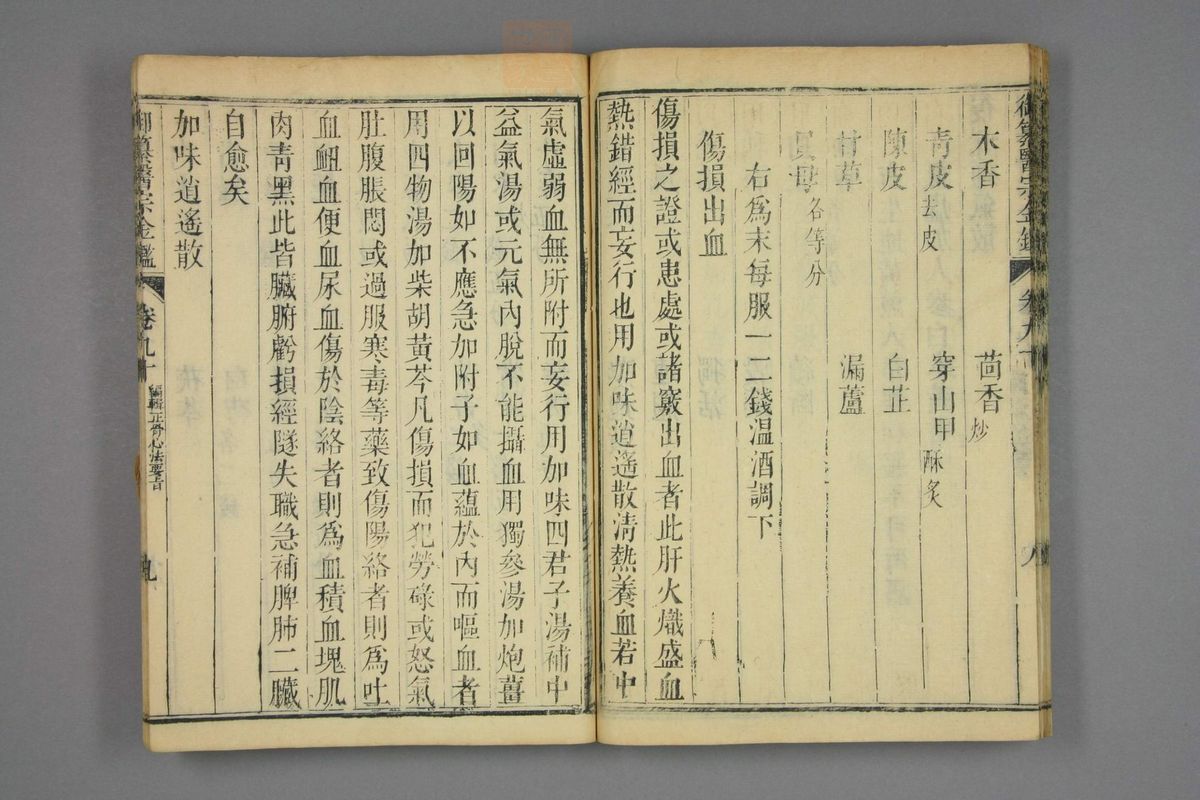 御纂醫宗金鑑 卷九十 八
木香 茴香炒
青皮去皮 穿山甲酥炙
陳皮 白芷
甘草 漏蘆
貝母各等分
右爲末每服一二錢温酒調下
傷損出血
傷損之證或患處或諸竅出血者此肝火熾盛血
熱錯經而妄行也用加味逍遙散清熱養血若中
氣虛弱血無所附而妄行用加味四君子湯補中
益氣湯或元氣內脫不能攝血用獨參湯加炮薑
以回陽如不應急加附子如血蘊於內而嘔血者
用四物湯加柴胡黃芩凡傷損而犯勞碌或怒氣
肚腹脹悶或過服寒毒等藥致傷陽絡者則爲吐
血衄血便血尿血傷於陰絡者則爲血積血塊肌
肉青黑此皆臟腑虧損經隧失職急補脾肺二臟
自愈矣
加味逍遙散
御纂醫宗金鑑 卷九十 編輯正骨心法要旨 九